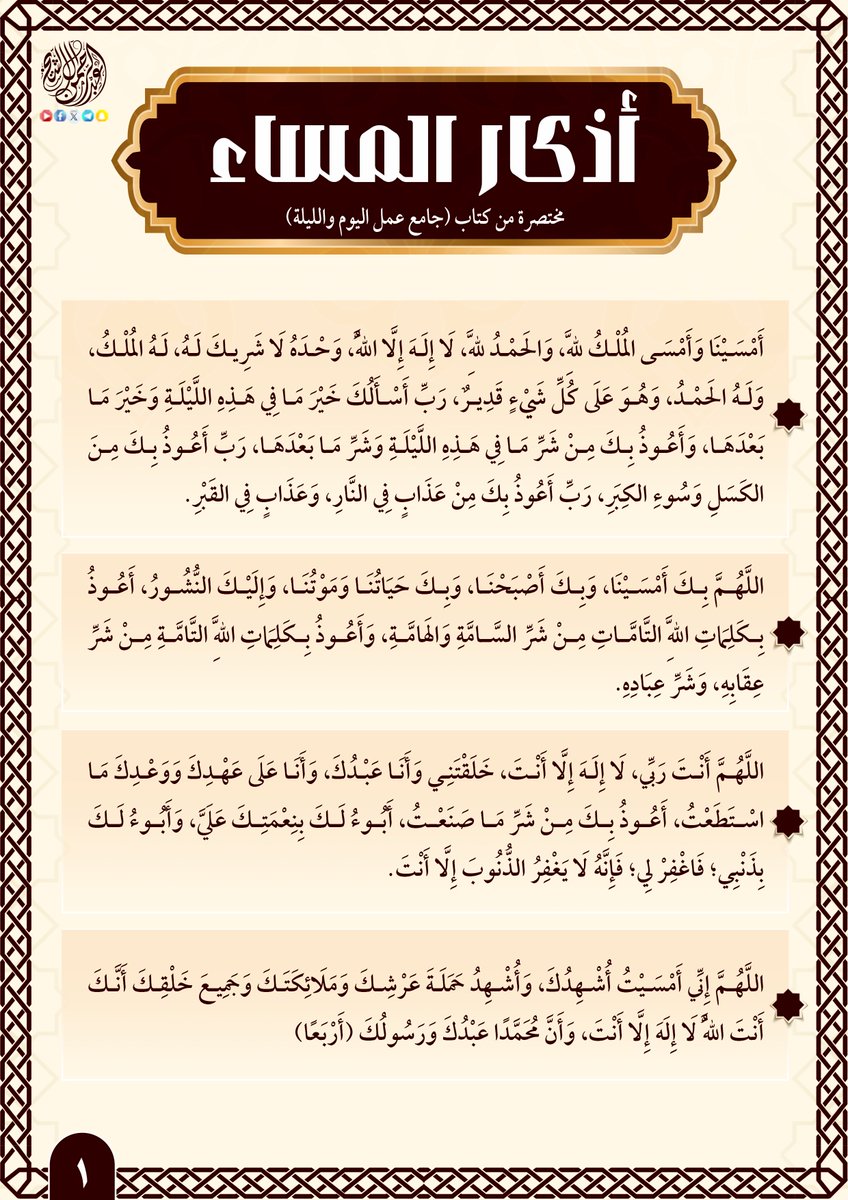 أذكار المساء
مختصرة من كتاب (جامع عمل اليوم والليلة)
أَمْسَيْنَا وَأَمْسَى المُلْكُ للهِ، وَالحَمْدُ للهِ، لَا إِلَهَ إِلَّا اللهُ، وَحْدَهُ لَا شَرِيكَ لَهُ، لَهُ المُلْكُ،
وَلَهُ الحَمْدُ، وَهُوَ عَلَى كُلِّ شَيْءٍ قَدِيرٌ، رَبِّ أَسْأَلُكَ خَيْرَ مَا فِي هَذِهِ اللَّيْلَةِ وَخَيْرَ مَا
بَعْدَهَا، وَأَعُوذُ بِكَ مِنْ شَرِّ مَا فِي هَذِهِ اللَّيْلَةِ وَشَرِّ مَا بَعْدَهَا، رَبِّ أَعُوذُ بِكَ مِنَ
الكَسَلِ وَسُوءِ الكِبَرِ، رَبِّ أَعُوذُ بِكَ مِنْ عَذَابٍ فِي النَّارِ، وَعَذَابٍ فِي القَبْرِ.
اللَّهُمَّ بِكَ أَمْسَيْنَا، وَبِكَ أَصْبَحْنَا، وَبِكَ حَيَاتُنَا وَمَوْتُنَا، وَإِلَيْكَ النُّشُورُ، أَعُوذُ
بِكَلِمَاتِ اللهِ التَّامَّاتِ مِنْ شَرِّ السَّامَّةِ وَالهَامَّةِ، وَأَعُوذُ بِكَلِمَاتِ اللهِ التَّامَّةِ مِنْ شَرِّ
عِقَابِهِ، وَشَرِّ عِبَادِهِ.
اللَّهُمَّ أَنْتَ رَبِّي، لَا إِلَهَ إِلَّا أَنْتَ، خَلَقْتَنِي وَأَنَا عَبْدُكَ، وَأَنَا عَلَى عَهْدِكَ وَوَعْدِكَ مَا
اسْتَطَعْتُ، أَعُوذُ بِكَ مِنْ شَرِّ مَا صَنَعْتُ، أَبُوءُ لَكَ بِنِعْمَتِكَ عَلَيَّ، وَأَبُوءُ لَكَ
بِذَنْبِي؛ فَاغْفِرْ لِي؛ فَإِنَّهُ لَا يَغْفِرُ الذُّنُوبَ إِلَّا أَنْتَ.
اللَّهُمَّ إِنِّي أَمْسَيْتُ أُشْهِدُكَ، وَأُشْهِدُ حَمَلَةَ عَرْشِكَ وَمَلَائِكَتَكَ وَجَمِيعَ خَلْقِكَ أَنَّكَ
أَنْتَ اللهُ لَا إِلَهَ إِلَّا أَنْتَ، وَأَنَّ مُحَمَّدًا عَبْدُكَ وَرَسُولُكَ (أَرْبَعًا)
١